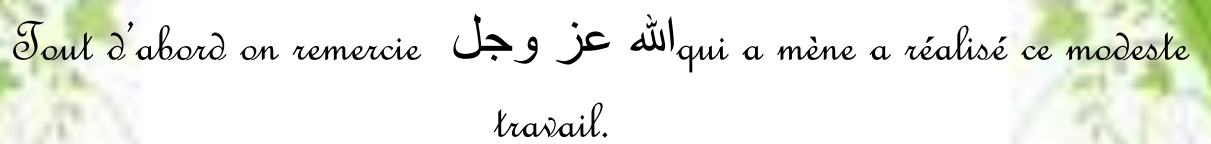 Tout d'abord on remercie الله عز وجل qui a mène a réalisé ce modeste
travail.